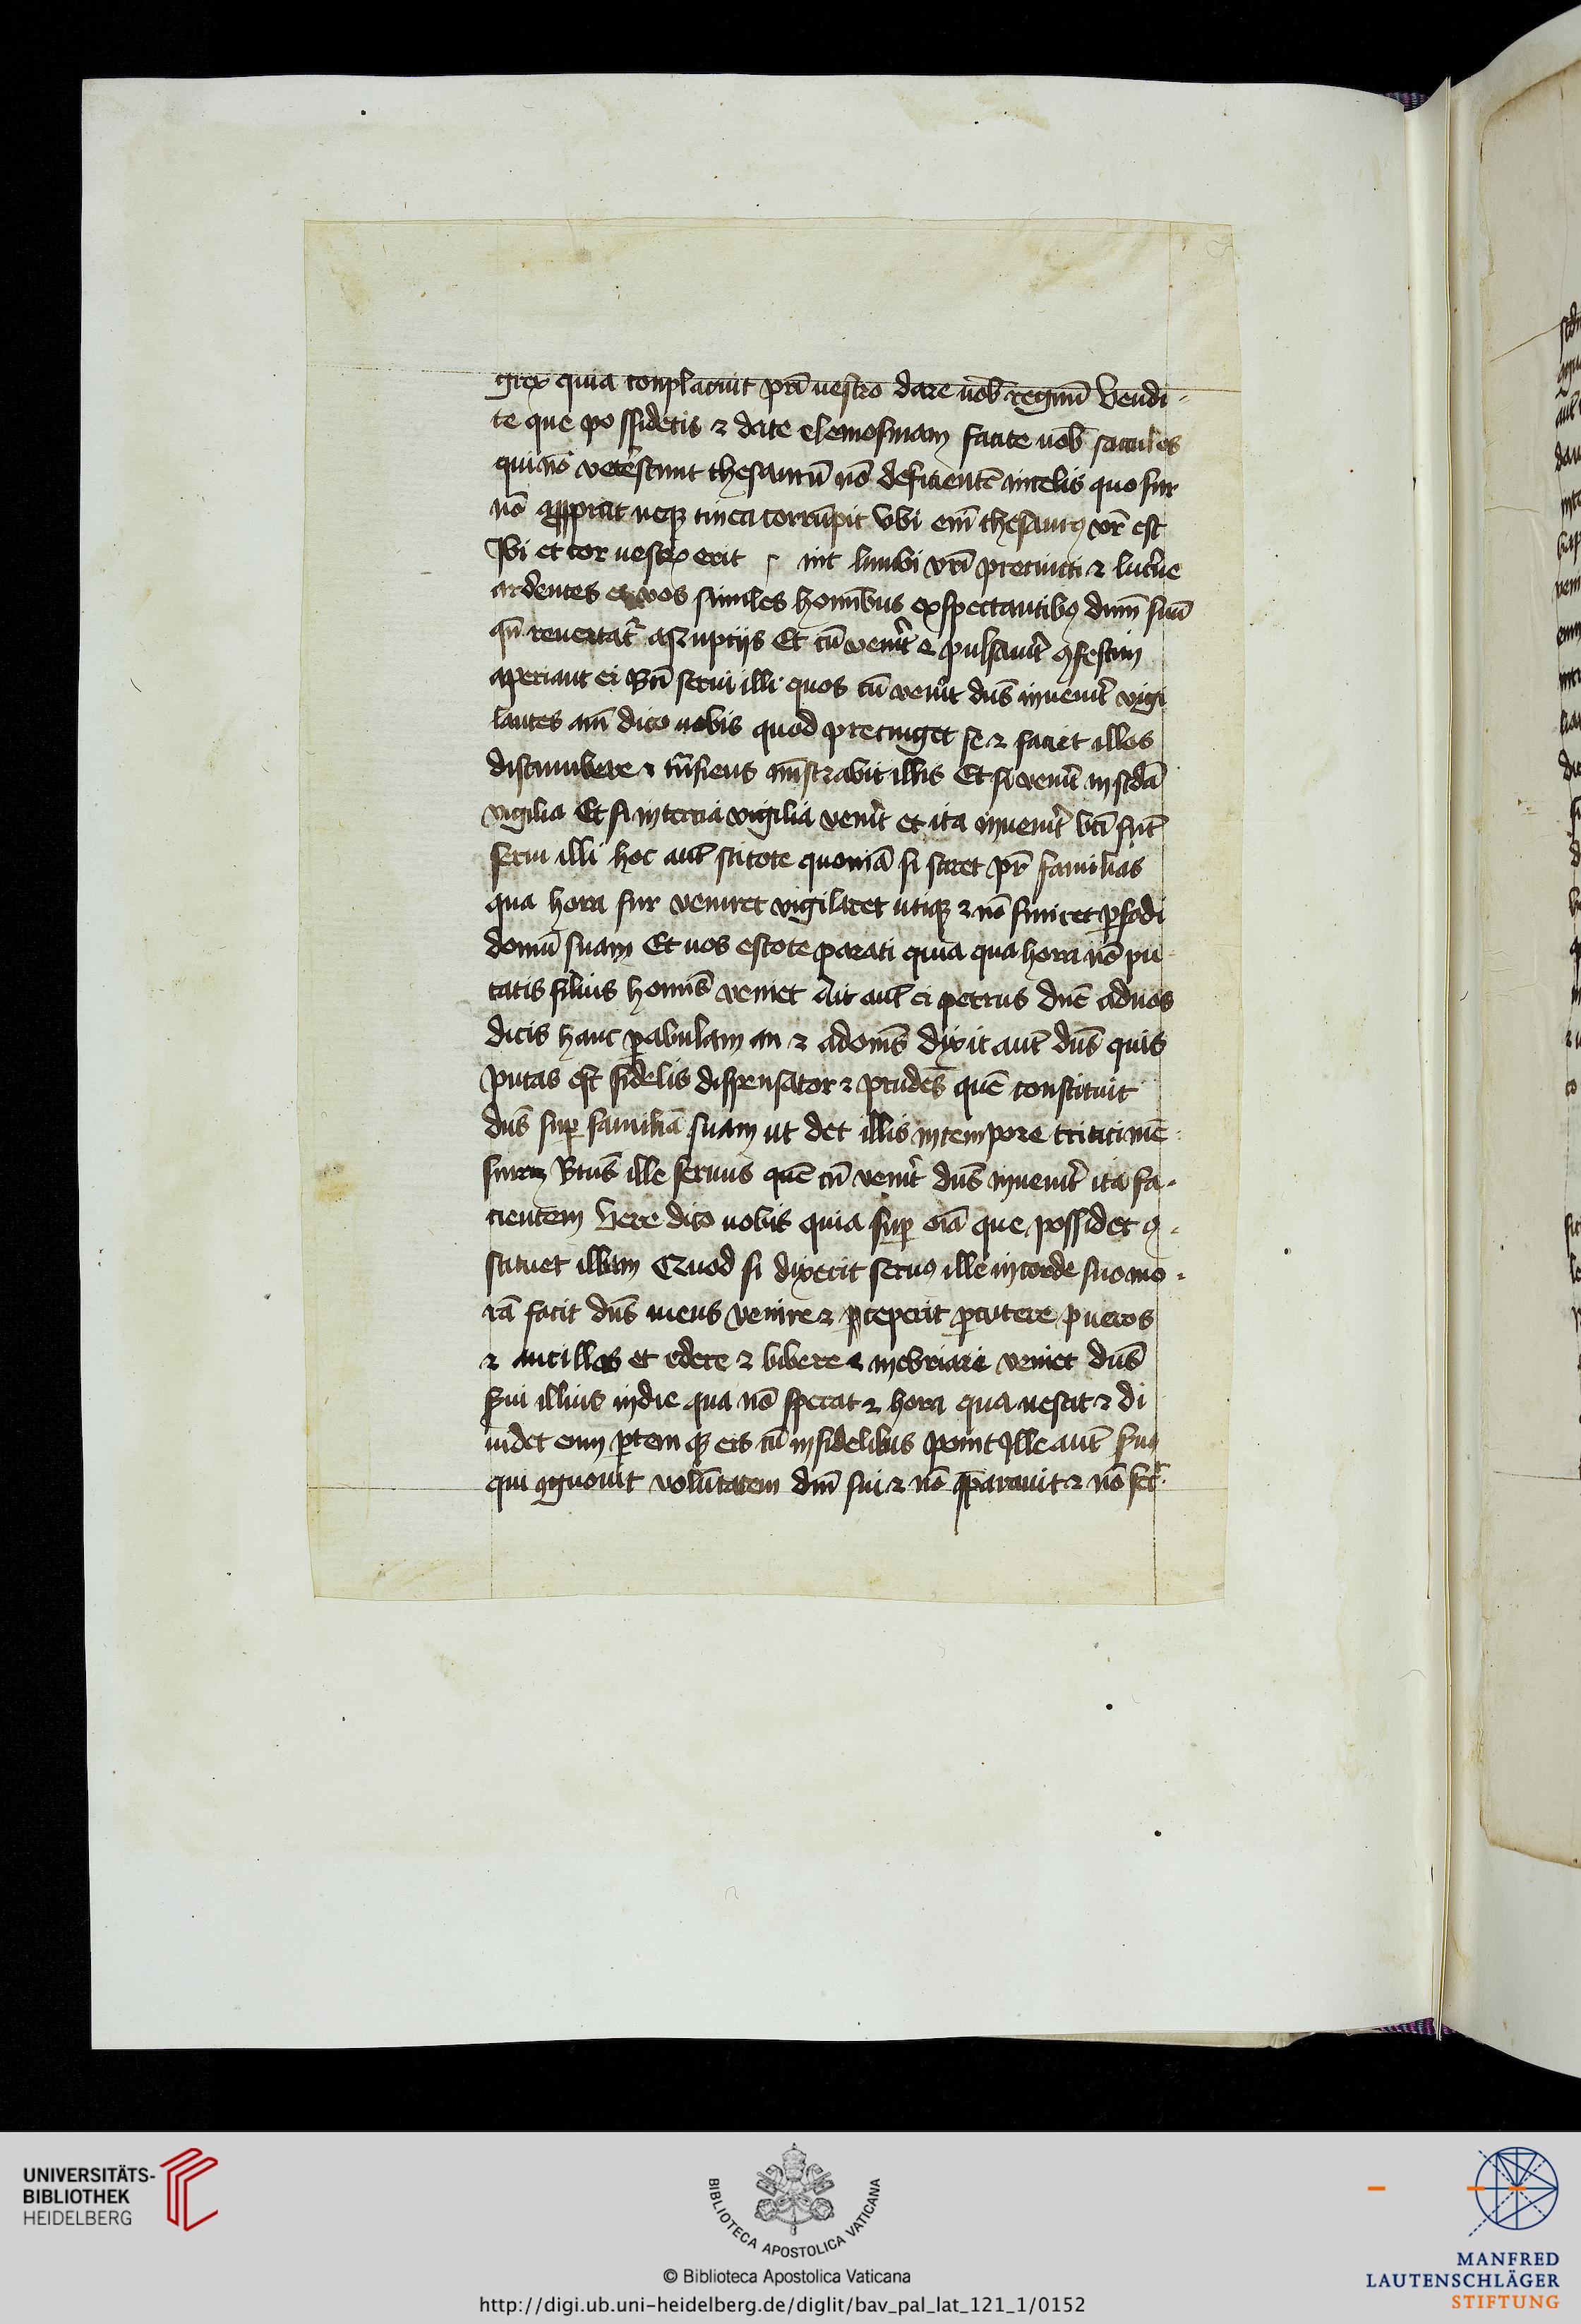 grex quia conplacuit pr̄i uestro dare uob̄ regnū Vendi-
te que possidetis ⁊ date elemosinam facite uob̄ sacculos
qui nō veterescunt thesaurū nō deficientē in celis quo fur
nō appropiat neqꝫ tinea corrūpit Vbi em̄ thesaurꝰ vr̄ est
Ibi et cor uestrū erit s int lumbi vr̄i precincti ⁊ lucerne
ardentes et vos similes hominibus exspectantibꝰ dnm̄ suū
qn̄ reuertatur a nuptijs Et cū venerit ⁊ pulsauerit ꝯfestim
aperiant ei Bt̄i serui illi quos cū venerit dn̄s inuenerit vigi
lantes am̄ dico uobis quod precinget se ⁊ faciet illos
discumbere ⁊ tn̄siens mīstrabit illis Et si venerit in scdā
vigilia Et si in tercia vigilia venerit et ita inuenerit bt̄i sūt
serui illi hoc aut̄ scitote quoniā si sciret pr̄ familias
qua hora fur veniret vigilaret utiqꝫ ⁊ nō sineret ꝑfodi
domū suam Et uos estote parati quia qua hora nō pu
tatis filius homīs veniet Ait aut̄ ei petrus dnē ad nos
dicis hanc ꝑabulam an ⁊ ad om̄s dixit aut̄ dn̄s quis
putas est fidelis dispensator ⁊ prudēs quē constituit
dn̄s suꝑ familiā suam ut det illis in tempore tritici mē
suram Bt̄us ille seruus quē cū venerit dn̄s inuenerit ita fa-
cientem Vere dico uobis quia suꝑ oīa que possidet ꝯ-
stituet illum Quod si dixerit seruꝰ ille in corde suo mo-
rā facit dn̄s meus venire ⁊ ceperit ꝑcutere pueros
⁊ ancillas et edere ⁊ bibere ⁊ inebriari veniet dn̄s
s̄ui illius in die qua nō sperat ⁊ hora qua nescit ⁊ di
uidet eum ꝑtem qꝫ eiꝰ cū infidelibus ponet Ille aut̄ s̄uꝰ
qui ꝯgnouit volūtatem dn̄i sui ⁊ nō p̄parauit ⁊ nō fec̄
UNIVERSITÄTS-
BIBLIOTHEK
HEIDELBERG
BIBLIOTECA APOSTOLICA VATICANA
© Biblioteca Apostolica Vaticana
http://digi.ub.uni-heidelberg.de/diglit/bav_pal_lat_121_1/0152
MANFRED
LAUTENSCHLÄGER
STIFTUNG